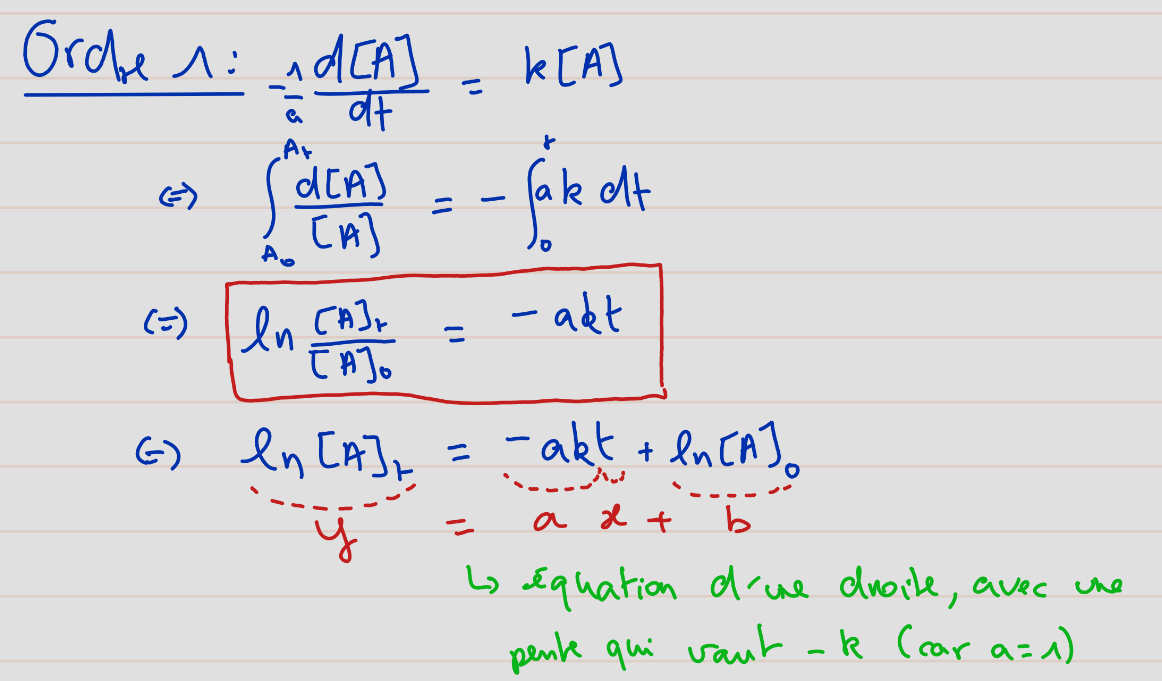 Ordre 1: -1/a d[A]/dt = k[A]
<=> ∫_{A₀}^{A_t} d[A]/[A] = - ∫_0^t ak dt
(=) ln [A]_t/[A]_0 = - akt
(=) ln [A]_t = -akt + ln[A]_0
y = a x + b
↳ équation d'une droite, avec une
pente qui vaut - k (car a=1)